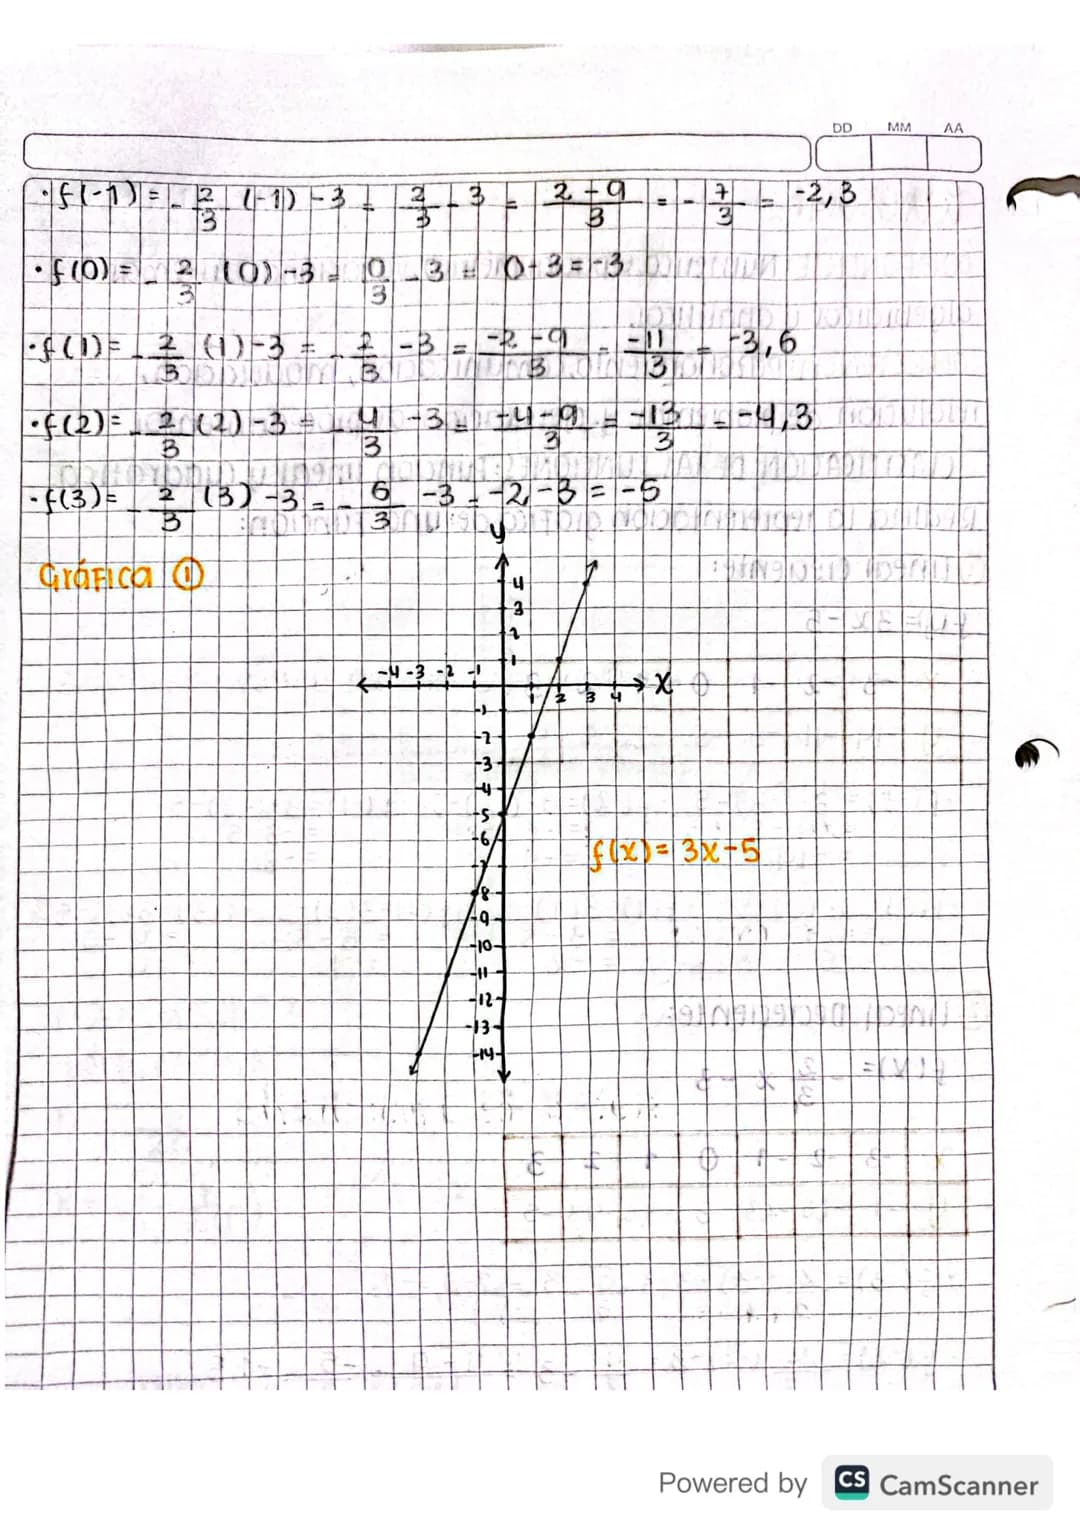 DD MM AA
·f(-1) = -2/3 (-1) -3 = 2/3 - 3 = 2-9/3 = -7/3 = -2,3
·f(0) = -2/3 (0) -3 = 0/3 - 3 = 0-3 = -3
·f(1) = -2/3 (1) -3 = -2/3 -3 = -2-9/3 = -11/3 = -3,6
·f(2) = -2/3 (2) -3 = -4/3 -3 = -4-9/3 = -13/3 = -4,3
·f(3) = -2/3 (3) -3 = -6/3 -3 = -2-3 = -5
Gráfica ①
y
4
3
2
1
-4 -3 -2 -1
1 2 3 4
X
-1
-2
-3
-4
-5
-6
-7
-8
-9
-10
-11
-12
-13
-14
f(x) = 3x-5
Powered by CS CamScanner